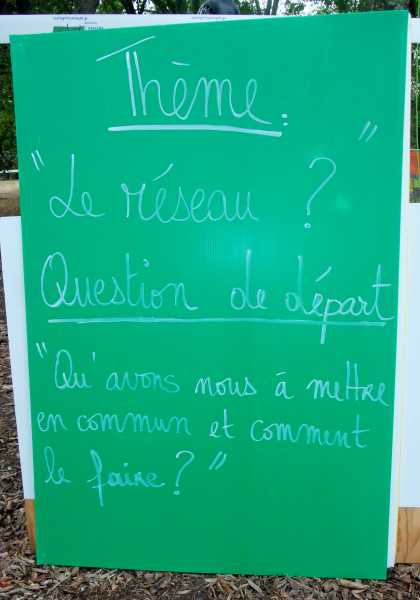 Thème :
"Le réseau ? "
Question de départ
"Qu'avons nous à mettre
en commun et comment
le faire ? "